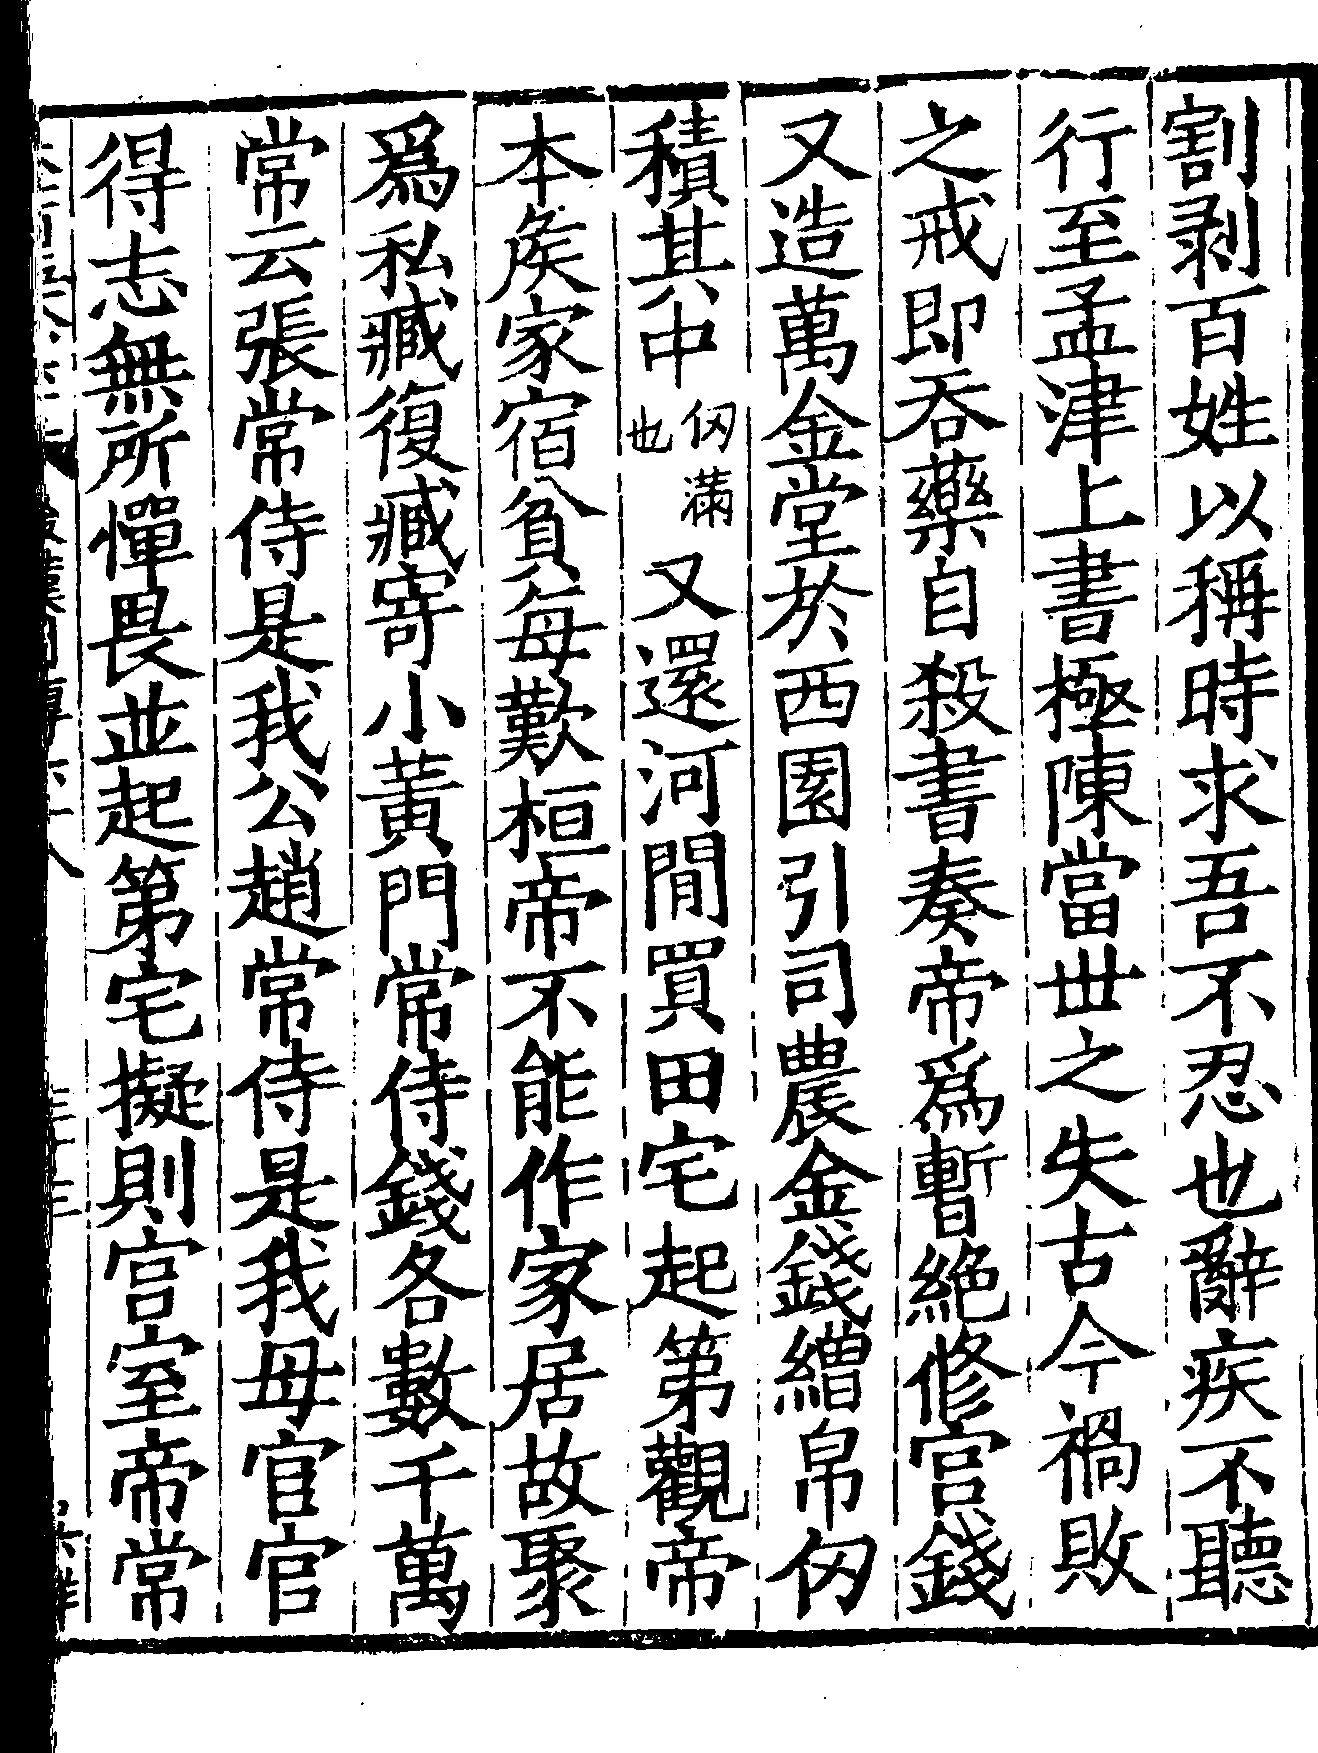 割剥百姓以稱時求吾不忍也辭疾不聽
行至孟津上書極陳當世之失古今禍敗
之戒即吞藥自殺書奏帝爲暫絶修宮錢
又造萬金堂於西園引司農金錢繒帛仞
積其中仞滿也又還河閒買田宅起第觀帝
本矦家宿貧每歎桓帝不能作家居故聚
爲私臧復臧寄小黃門常侍錢各數千萬
常云張常侍是我公趙常侍是我母宦官
得志無所憚畏並起第宅擬則宮室帝常